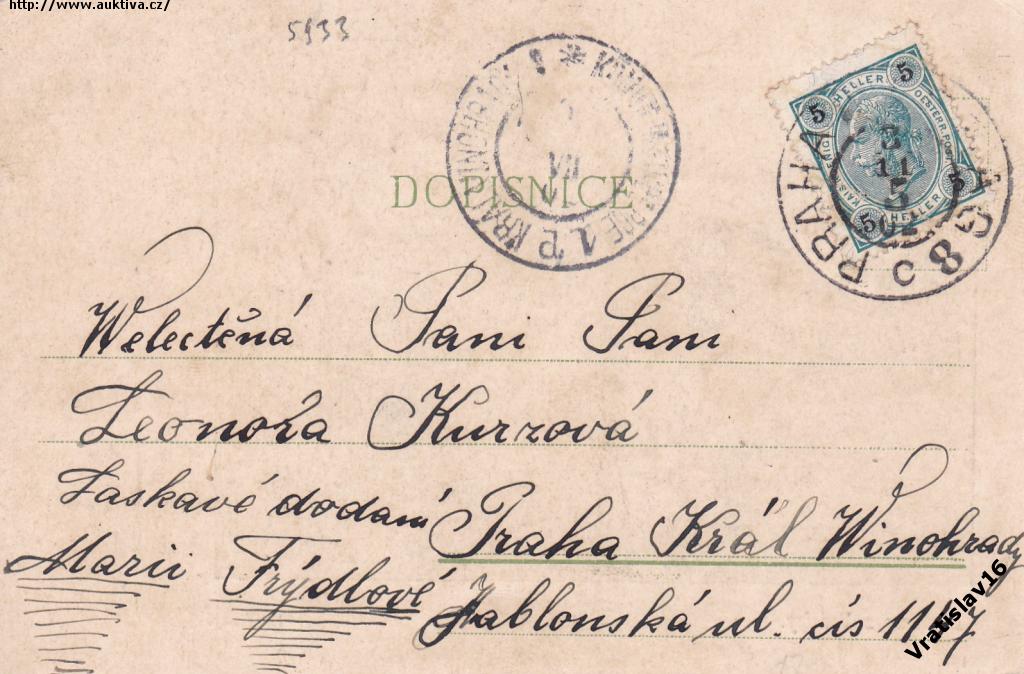 http://www.auktiva.cz/
5933
DOPISNICE
5 HELLER 5
OESTERR. POST
5 HELLER 5
PRAHA
3
11
5
8
C
VII
1
Welectěná Paní Paní
Leonora Kurzová
Laskavé dodaní Praha Král Winohrady
Marii Frýdlové Jablonská ul. čís 11
Vratislav16